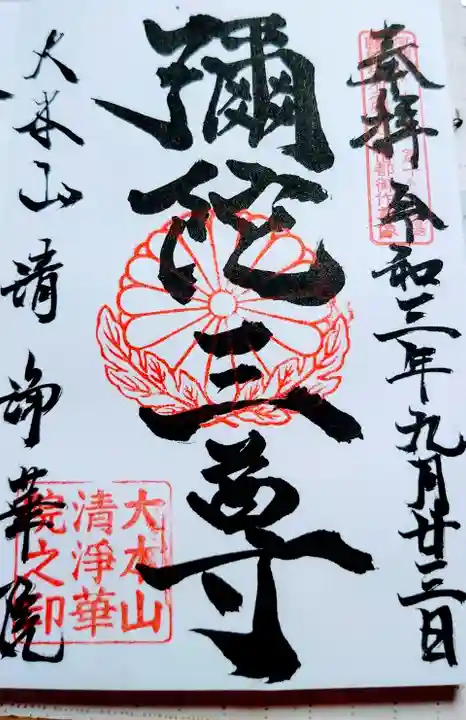 奉拝 令和三年九月廿三日
彌陀三尊
大本山清浄華院
大本山
清淨華
院之印